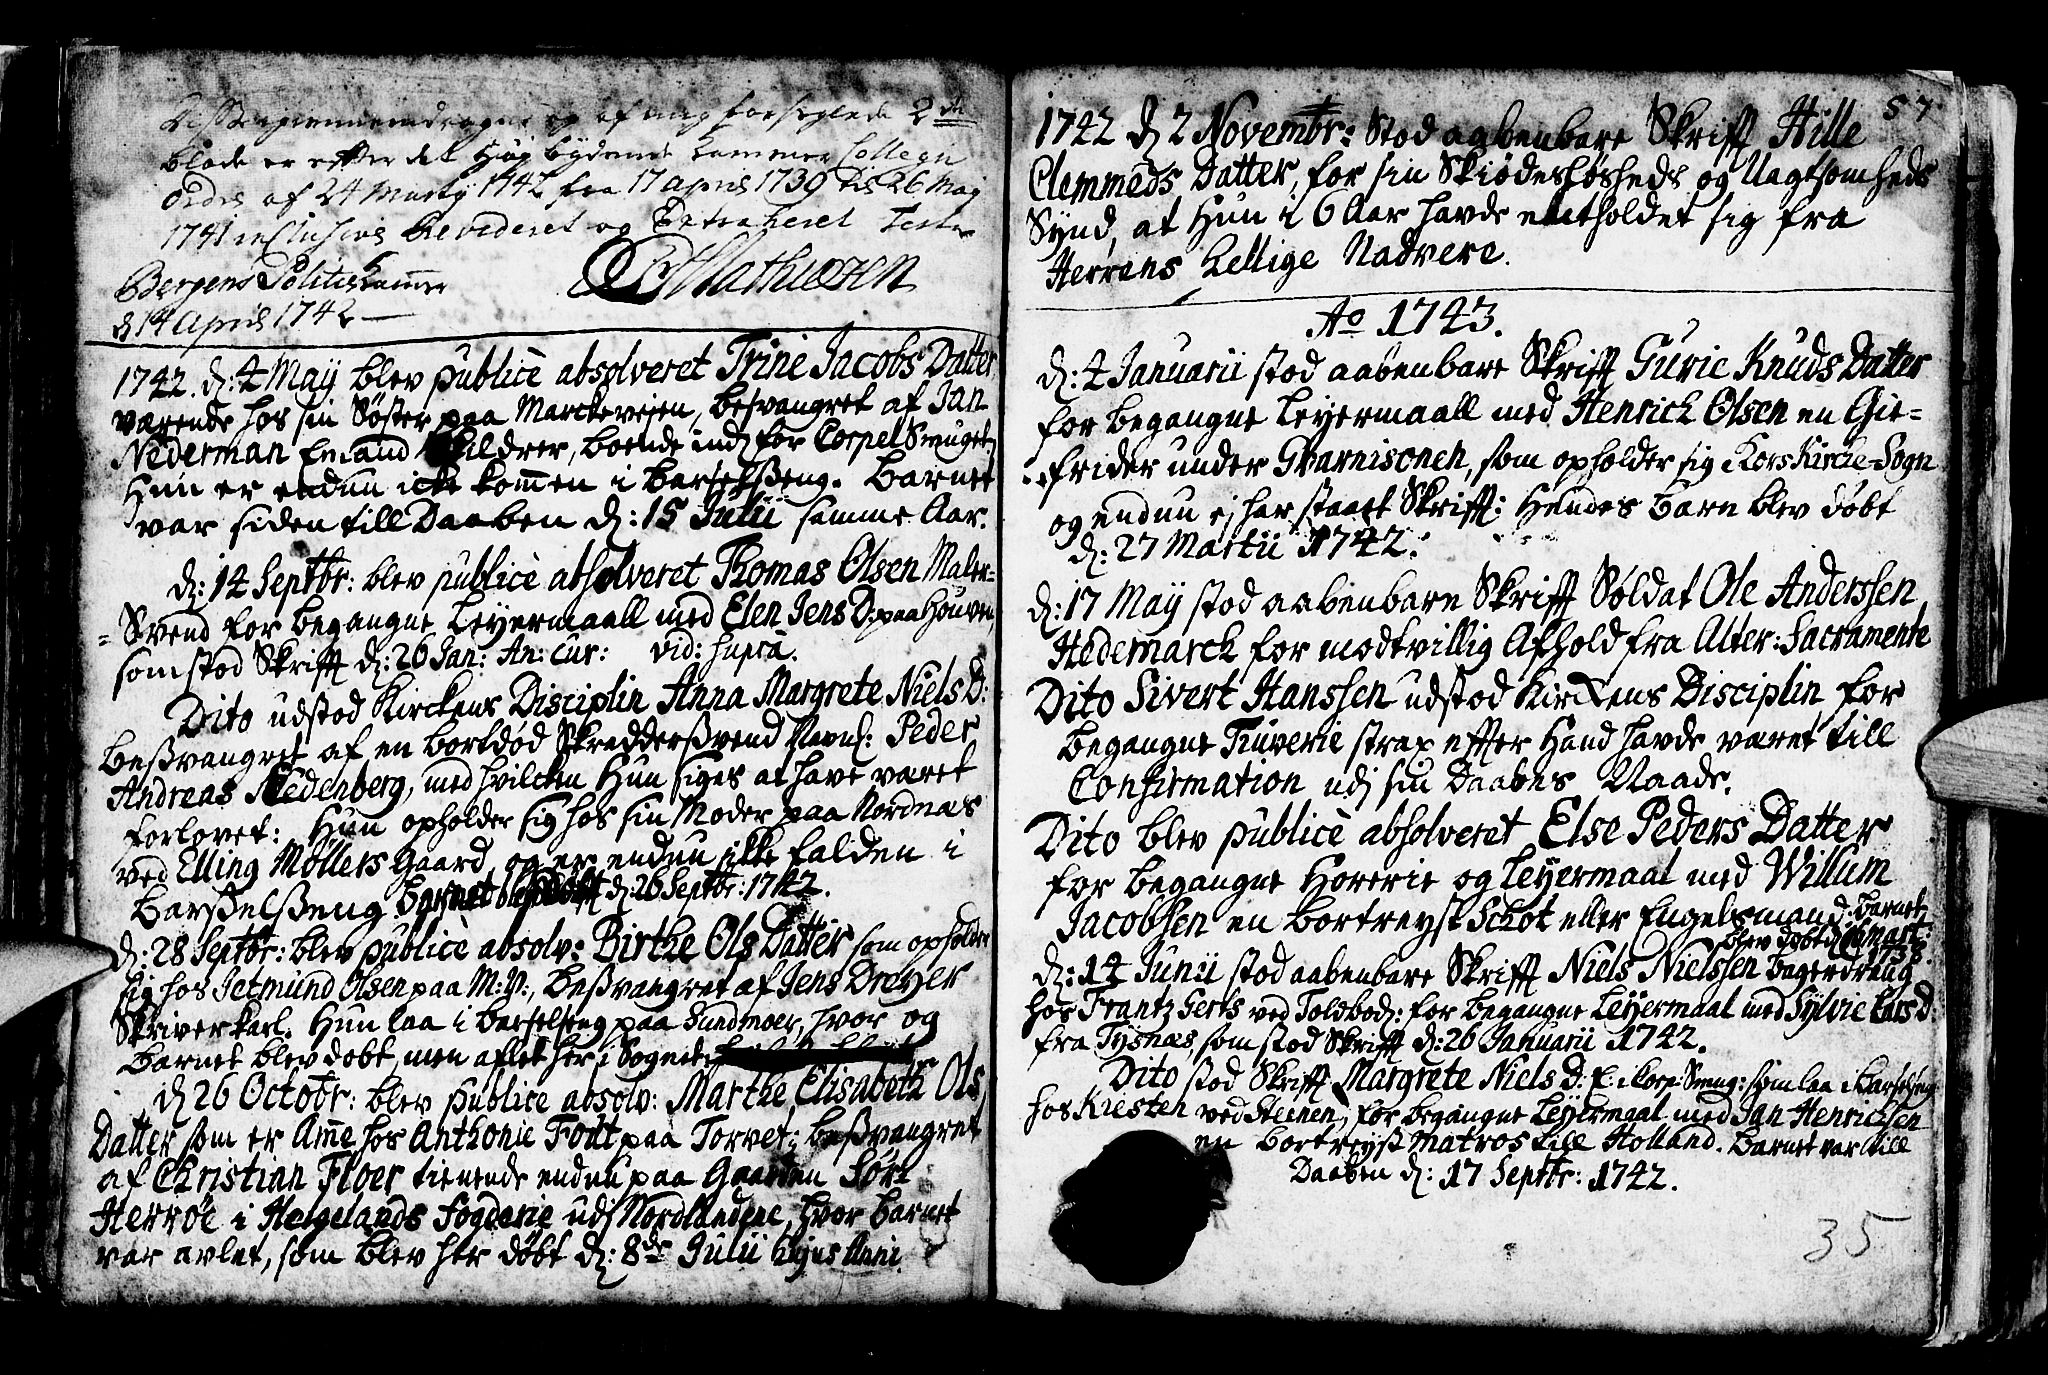 blade er efter det Høy bydende Cammer Collegii
Ordre af 24 Martij 1742 fra 17 April 1739 til 26 Maj
1741 inclusive Revideret og Extraheret Test.
Bergens Politi Cammer
d 14 April 1742
1742. d: 4 Maij blev publicè absolveret Trine Jacobs Datter
værende hos sin Søster paa Marckeveien, besvangret af Jan
Nederman boende ind for Corpel Smuget
Hun er endnu icke kommen i Barselsseng. Barnet
var siden till Daaben d: 15 Julii samme Aar.
d: 14 Septbr: blev publicè absolveret Thomas Olsen Maler=
=Svend for begangne Leyermaall med Elen Jens D: paa Houven,
som stod Skrifft d: 26 Jan: An: cur: vid: supra.
Dito udstod Kirckens Disciplin Anna Margrete Niels D:
besvangret af en bortdød Skreddersvend Navnl: Peder
Andreas Nedenberg, med hvilcken Hun siges at have været
forlovet: Hun opholder sig hos sin Moder paa Nordnæs
ved Elling Møllers Gaard, og er endnu ikke falden i
Barselsseng Barnet blev døbt d: 26 Septbr: 1742.
d: 28 Septbr: blev publicè absolv: Birthe Ols Datter som opholder
sig hos Jetmund Olsen paa M: V:, besvangret af Jens Dreyer
Skriverkarl. Hun laa i barselseng paa Sundmoer, hvor og
Barnet blev døbt, men aflet her i Sognet
d 26 Octobr: blev publicè absolv: Marthe Elisabeth Ols
Datter som er Amme hos Anthonie Fodt paa Torvet; besvangret
af Christian Floer tienende endnu paa Gaarden Sør
Herrøe i Helgelands Fogderie udj Nordlandene, hvor Barnet
var avlet, som blev her døbt d: 8de Julii hujus Anni.
57
1742 d 2 Novembr: Stod aabenbare Skrifft Hille
Clemmeds Datter, for sin Skiødesløsheds og Uagtsomheds
Synd, at Hun i 6 Aar havde entholdet sig fra
Herrens Hellige Nadvere.
Ao 1743.
d: 4 Januarii stod aabenbare Skrifft Gurie Knuds Datter
for begangne Leyermaall med Henrich Olsen en Gie=
=frider under Guarnisonen, som opholder sig i Kors Kircke-Sogn
og endnu ej har staaet Skrifft: Hendes Barn blev døbt
d: 27 Martii 1742.
d: 17 Maij stod aabenbare Skrifft Soldat Ole Anderssen
Hedemarck for modtvillig Afhold fra Alter: Sacramente
Dito Sivert Hanssen udstod Kirckens Disciplin for
begangne Tiuverie strax effter Hand havde været till
Confirmation udj sin Daabes Naade.
Dito blev publicè absolveret Else Peders Datter
for begangne Horerie og Leyermaal med Willum
Jacobsen en bortreyst Schot eller Engelsmand: Barnet
blev døbt d Mart: 1738.
d: 14 Junii stod aabenbare Skrifft Niels Nielssen bagerdreng
hos Frantz Gerts ved Tolboden: for begangne Leyermaal med Sylvie Lars D:
fra Tysnæs, som stod Skrifft d: 26 Januarii 1742.
Dito stod Skrifft Margrete Niels D: E. i Korp: Smug: som laa i barselseng
hos Kirsten ved Steenen, for begangne Leyermaal med Jan Henrichsen
en bortreyst Matros till Holland. Barnet var till
Daaben d: 17 Septbr: 1742.
35